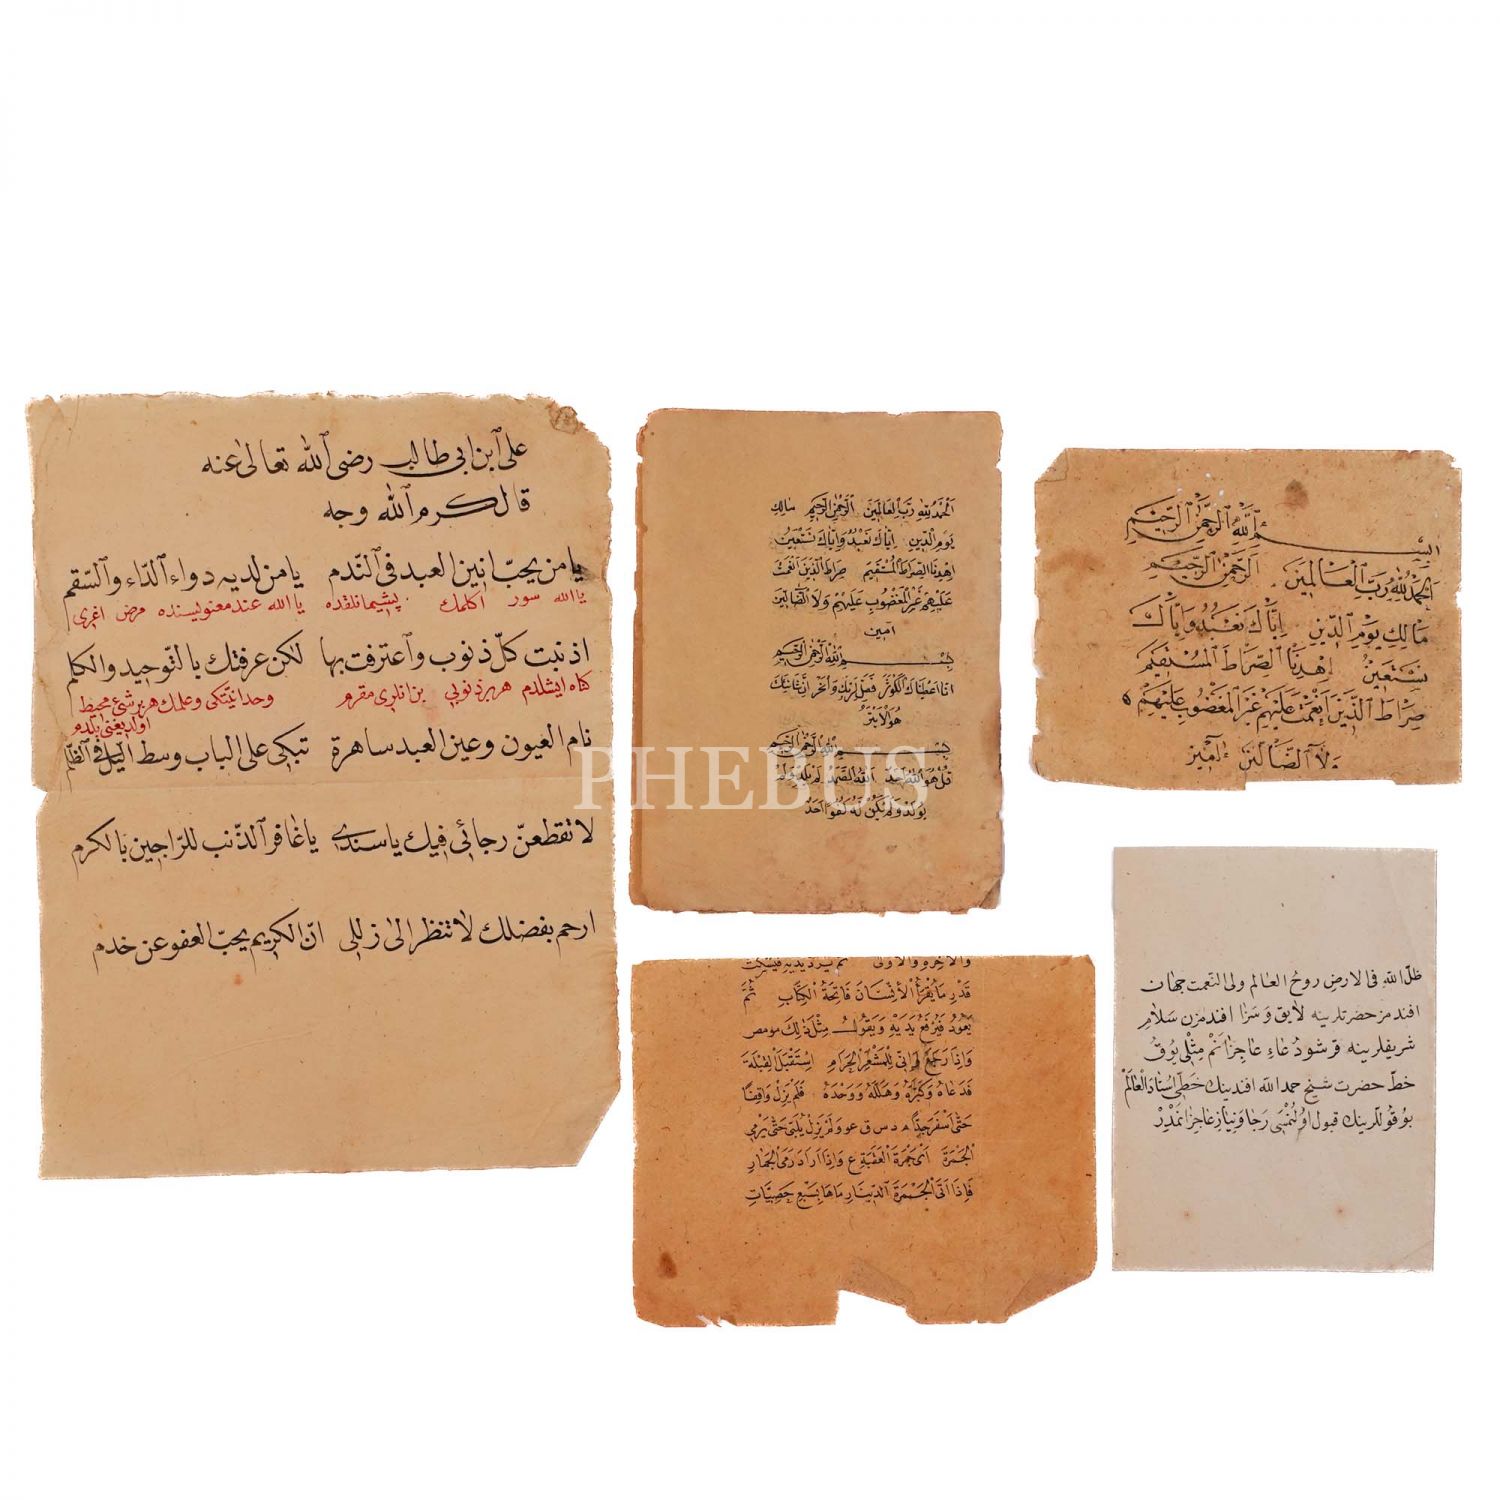 علی ابن ابی طالب رضی الله تعالی عنه
قال كرم الله وجه
يا من يحبّ انين العبد فی الندم يا من لديه دواء الدّاء والسّقم
يا الله سور اكلمك پشيمانلقده يا الله عند معنويسنده مرض اغری
اذنبت كلّ ذنوب واعترفت بها لاكن عرفتك بالتوحيد والكلم
كناه ايشلدم هر بر ذنوبی بن انلری مقرم وحدانيتكی وعلمك هر بر شئ محيط
اولديغنی بلدم
نام العيون وعين العبد ساهرة تبكی علی الباب وسط اليل فی الظلم
لا تقطعنّ رجائی فيك يا سندی يا غافر الذنب للرّاجين بالكرم
ارحم بفضلك لا تنظر الی زللی انّ الكريم يحبّ العفو عن خدم
الحمد لله رب العالمين الرحمن الرحيم مالك
يوم الدين اياك نعبد واياك نستعين
اهدنا الصراط المستقيم صراط الذين انعمت
عليهم غير المغضوب عليهم ولا الضالين
امين
بسم الله الرحمن الرحيم
انا اعطيناك الكوثر فصل لربك وانحر ان شانئك
هو الابتر
بسم الله الرحمن الرحيم
قل هو الله احد الله الصمد لم يلد ولم
يولد ولم يكن له كفوا احد
بسم الله الرحمن الرحيم
الحمد لله رب العالمين الرحمن الرحيم
مالك يوم الدين اياك نعبد واياك
نستعين اهدنا الصراط المستقيم
صراط الذين انعمت عليهم غير المغضوب عليهم ه
ولا الضالين امين
والاخر والاولی ثم يرد يديه فيسكت
قدر ما يقرأ الانسان فاتحة الكتاب ثم
يعود فيرفع يديه ويقول مثل ذلك مو مص
واذا رجع اتی المشعر الحرام استقبل القبلة
فدعاه وكبره وهلله ووحده فلم يزل واقفا
حتی اسفر جدا م د س ق عو ولم يزل يلبی حتی يرمی
الجمرة ای جمرة العقبة ع واذا اراد رمی الجمار
فاذا اتی الجمرة الدينا رماها بسبع حصيات
ظلّ الله فی الارض روح العالم ولی النعمت جهان
افندمز حضرتلرينه لايق وسزا افندمزن سلام
شريفلرينه قرشو دعاء عاجزانم مثلی يوق
خط حضرت شيخ حمد الله افندينك خطی استاد العالم
بو قوللرينك قبول اولنمسی رجا ونياز عاجزانمدر
PHEBUS